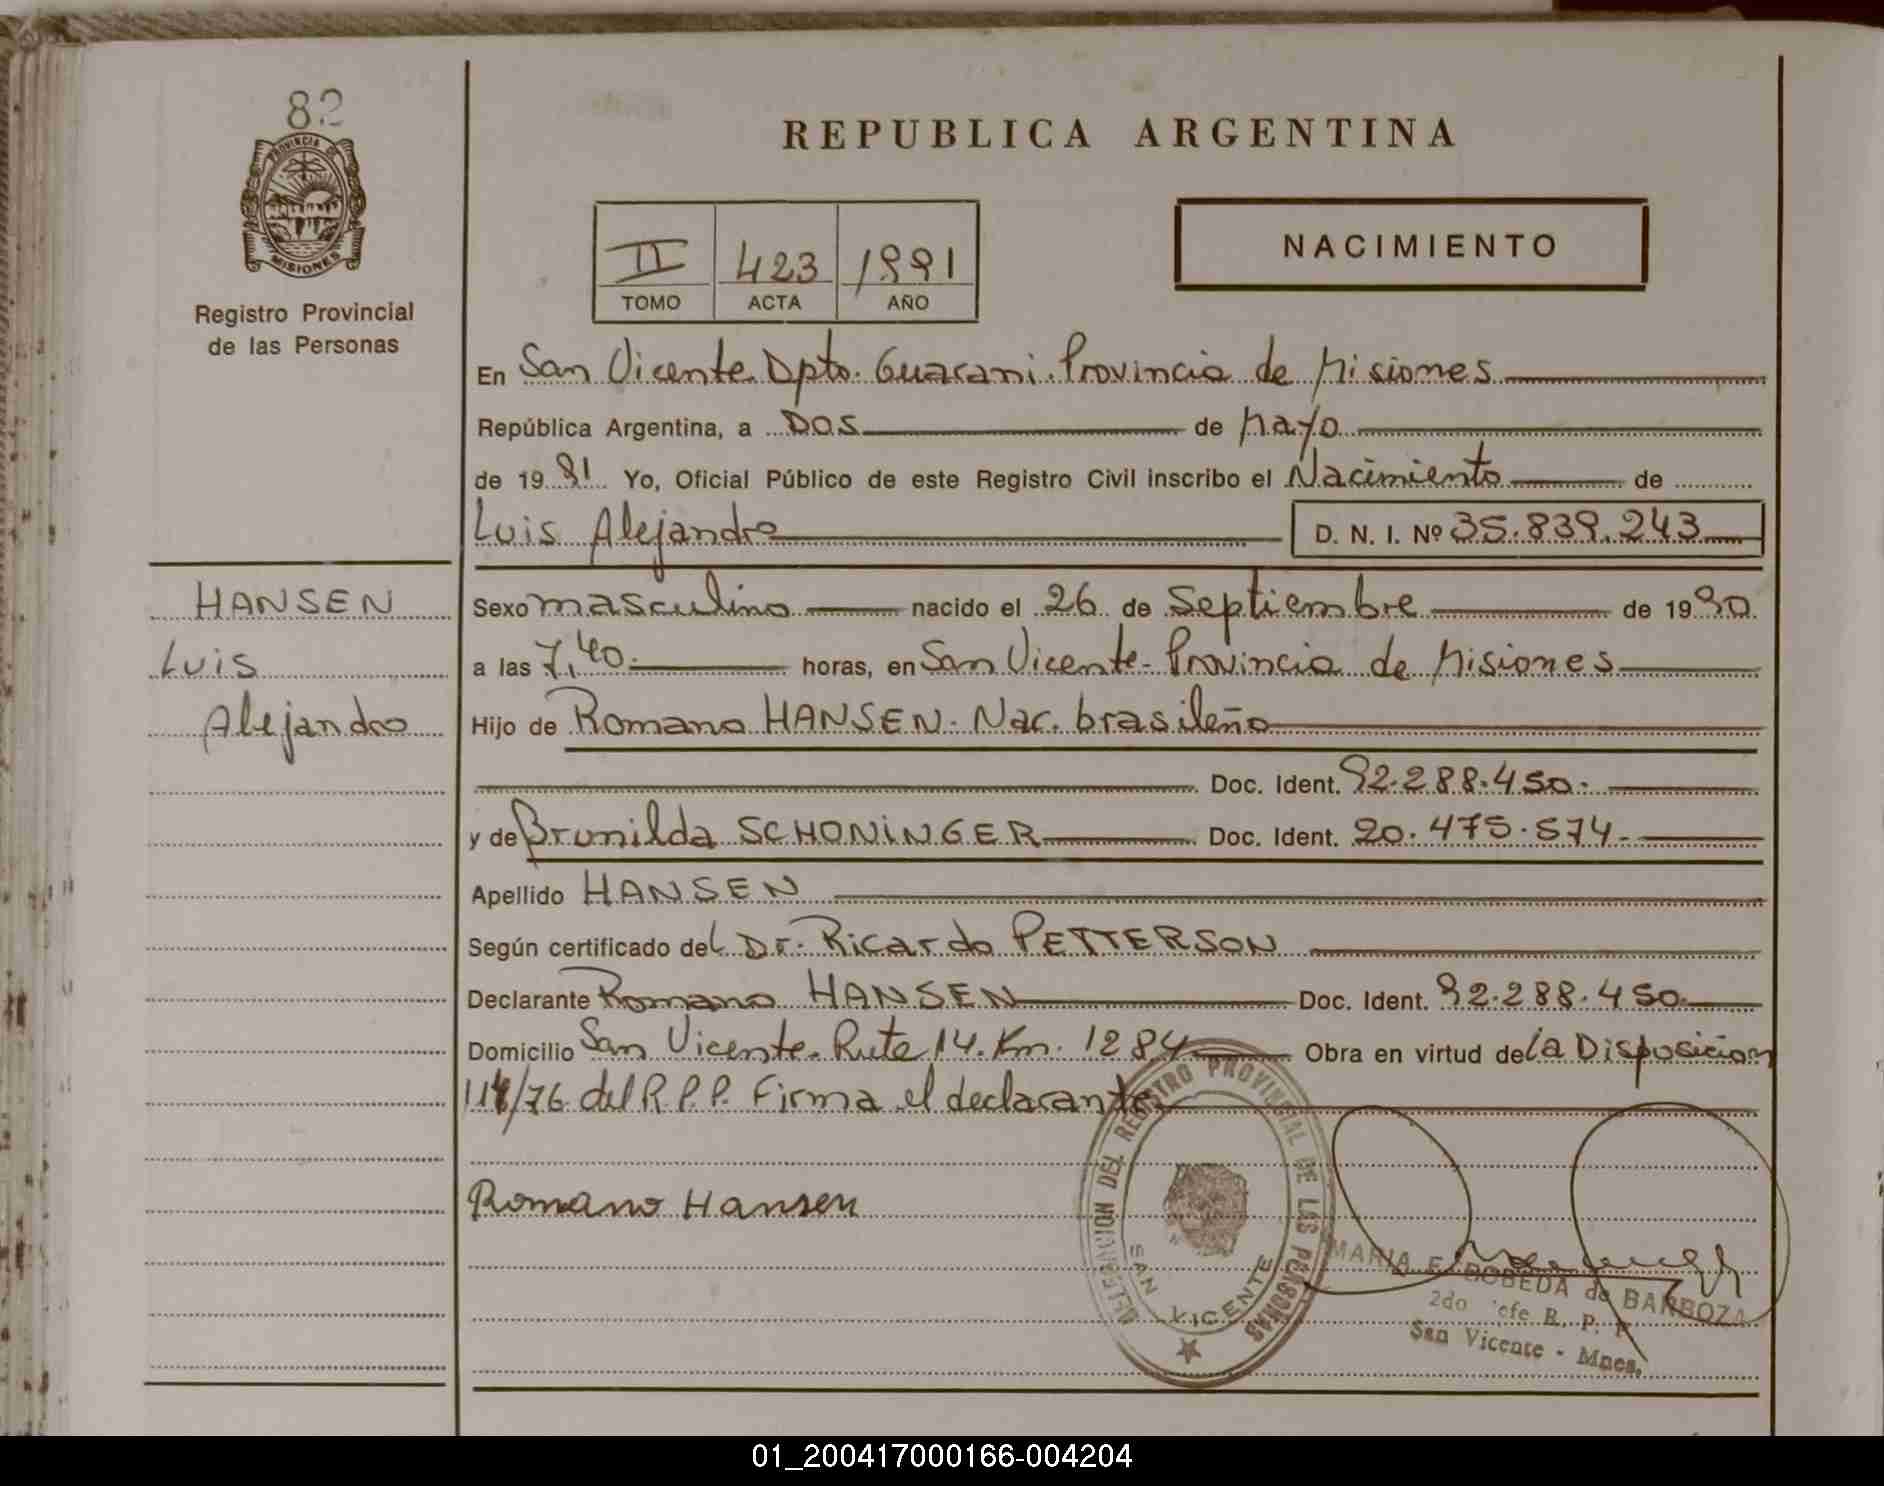 82
PROVINCIA DE
MISIONES
Registro Provincial
de las Personas
HANSEN
Luis
Alejandro
REPUBLICA ARGENTINA
II 423 1991
TOMO ACTA AÑO
NACIMIENTO
En San Vicente. Dpto. Guarani. Provincia de Misiones
República Argentina, a Dos de Mayo
de 1991 Yo, Oficial Público de este Registro Civil inscribo el Nacimiento de
Luis Alejandro D. N. I. Nº 35.839.243
Sexo masculino nacido el 26 de Septiembre de 1990
a las 7,40. horas, en San Vicente- Provincia de Misiones
Hijo de Romano HANSEN. Nac. brasileño
Doc. Ident. 92.288.450.
y de Brunilda SCHONINGER Doc. Ident. 20.475.574.
Apellido HANSEN
Según certificado del Dr. Ricardo PETTERSON
Declarante Romano HANSEN Doc. Ident. 92.288.450.
Domicilio San Vicente. Ruta 14. Km. 1284 Obra en virtud de la Disposicion
/76 del R.P.P. Firma el declarante
Romano Hansen
DELEGACION DEL REGISTRO PROVINCIAL DE LAS PERSONAS
SAN VICENTE
MARIA E. BOBEDA de BARBOZA
2do Jefe R. P. P.
San Vicente - Mnes.
01_200417000166-004204